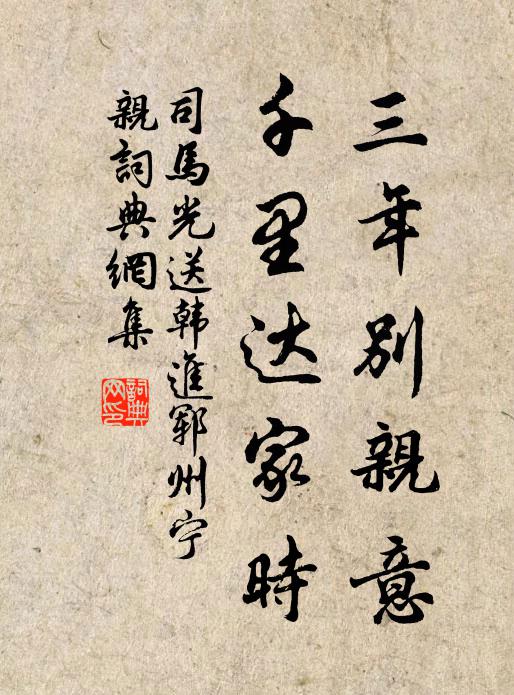 三年別親意
千里达家時
司馬光送韩進郓州宁
親詞典網集
詞典
网印